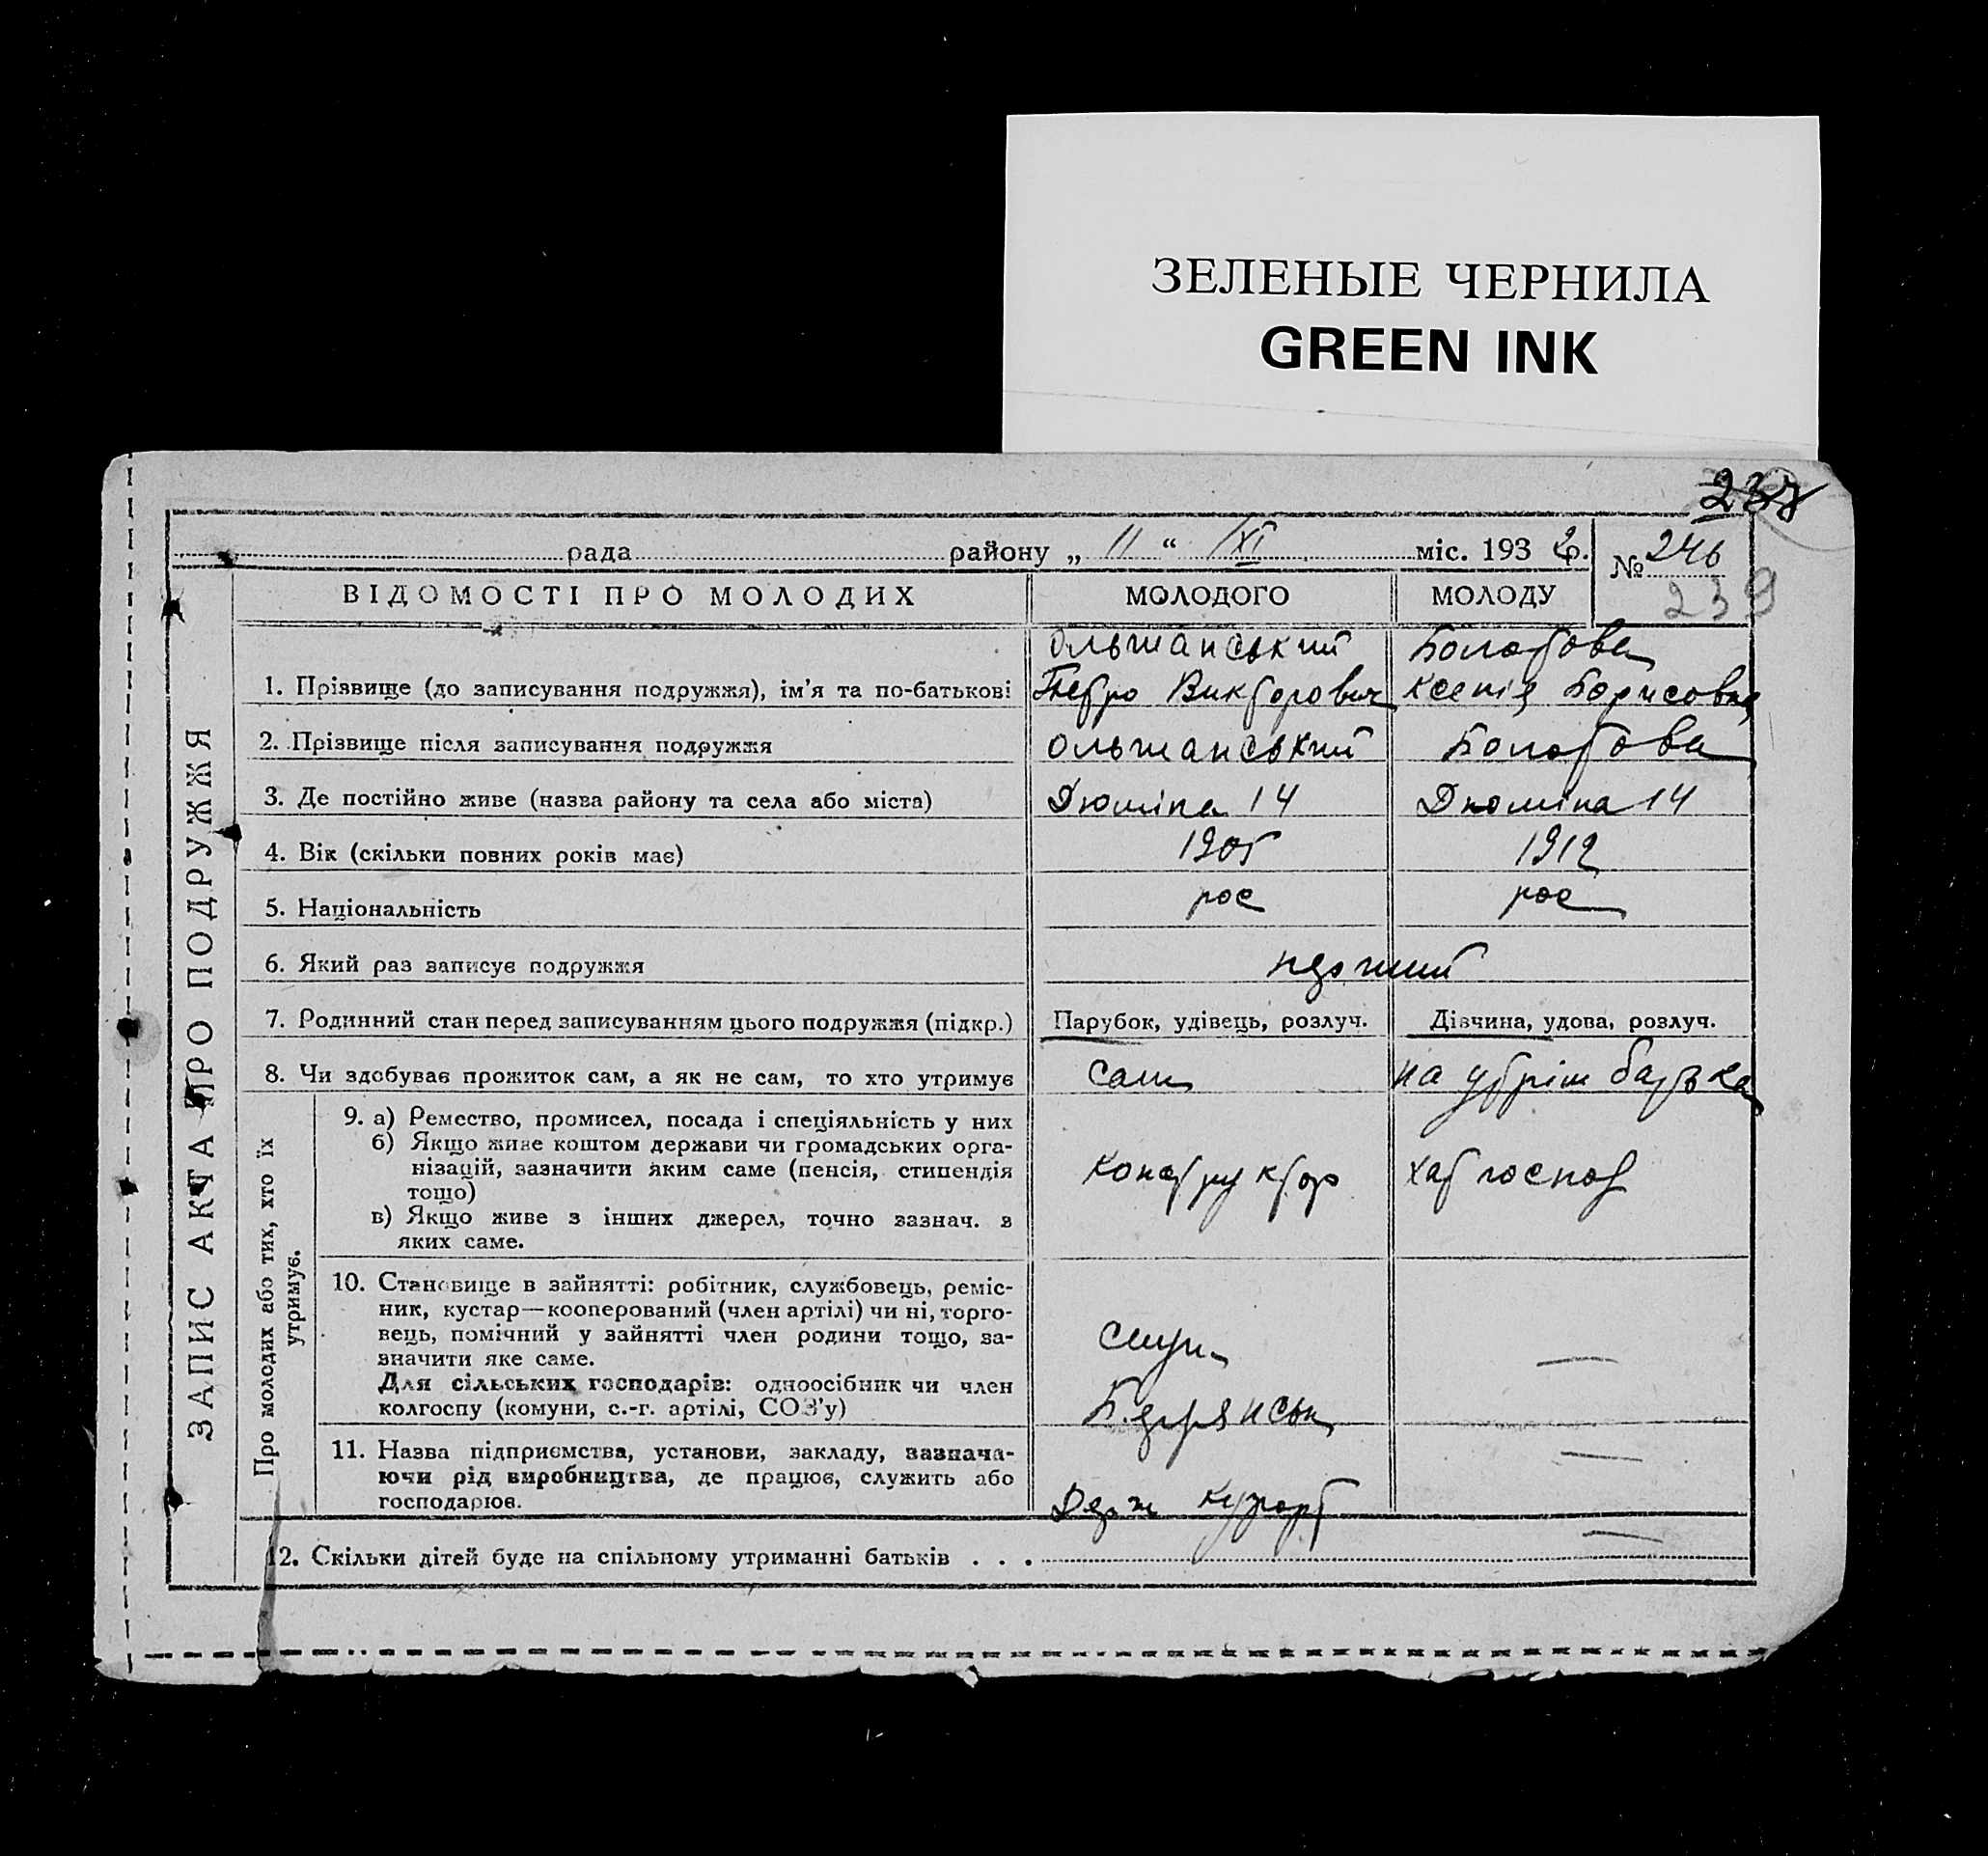 ЗЕЛЕНЫЕ ЧЕРНИЛА
GREEN INK
237
рада району „ 11 “ XI міс. 1932р. № 246
239
ВІДОМОСТІ ПРО МОЛОДИХ МОЛОДОГО МОЛОДУ
Ольшанський Болотова
1. Прізвище (до записування подружжя), ім’я та по-батькові Петро Викторович Ксенія Борисовна
2. Прізвище після записування подружжя Ольшанський Болотова
3. Де постійно живе (назва району та села або міста) Дюміна 14 Дюміна 14
4. Вік (скільки повних років має) 1905 1912
5. Національність рос рос
6. Який раз записує подружжя перший
7. Родинний стан перед записуванням цього подружжя (підкр.) Парубок, удівець, розлуч. Дівчина, удова, розлуч.
8. Чи здобуває прожиток сам, а як не сам, то хто утримує сам на утрім батька
9. а) Ремество, промисел, посада і спеціяльність у них
б) Якщо живе коштом держави чи громадських орга-
нізацій, зазначити яким саме (пенсія, стипендія конструктор хат господ
тощо)
в) Якщо живе з інших джерел, точно зазнач. з
яких саме.
10. Становище в зайнятті: робітник, службовець, реміс-
ник, кустар—кооперований (член артілі) чи ні, торго-
вець, помічний у зайнятті член родини тощо, за- служ —
значити яке саме.
Для сільських господарів: одноосібник чи член
колгоспу (комуни, с.-г. артілі, СОЗ’у)
11. Назва підприємства, установи, закладу, зазнача- —
ючи рід виробництва, де працює, служить або
господарює. Держ курорт
12. Скільки дітей буде на спільному утриманні батьків . . . —
ЗАПИС АКТА ПРО ПОДРУЖЖЯ
Про молодих або тих, хто їх
утримує.